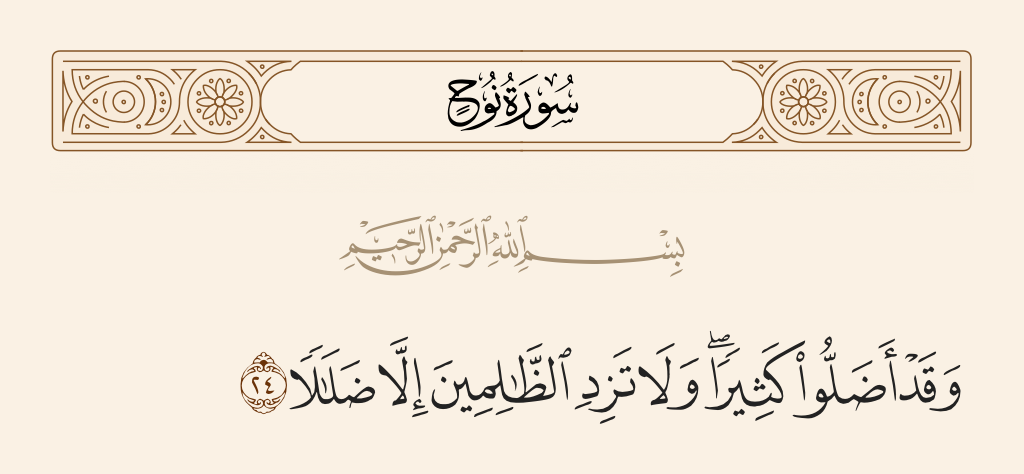 سُورَةُ نُوحٍ
بِسْمِ ٱللَّهِ ٱلرَّحْمَٰنِ ٱلرَّحِيمِ
وَقَدْ أَضَلُّوا۟ كَثِيرًا ۖ وَلَا تَزِدِ ٱلظَّٰلِمِينَ إِلَّا ضَلَٰلًا ٢٤